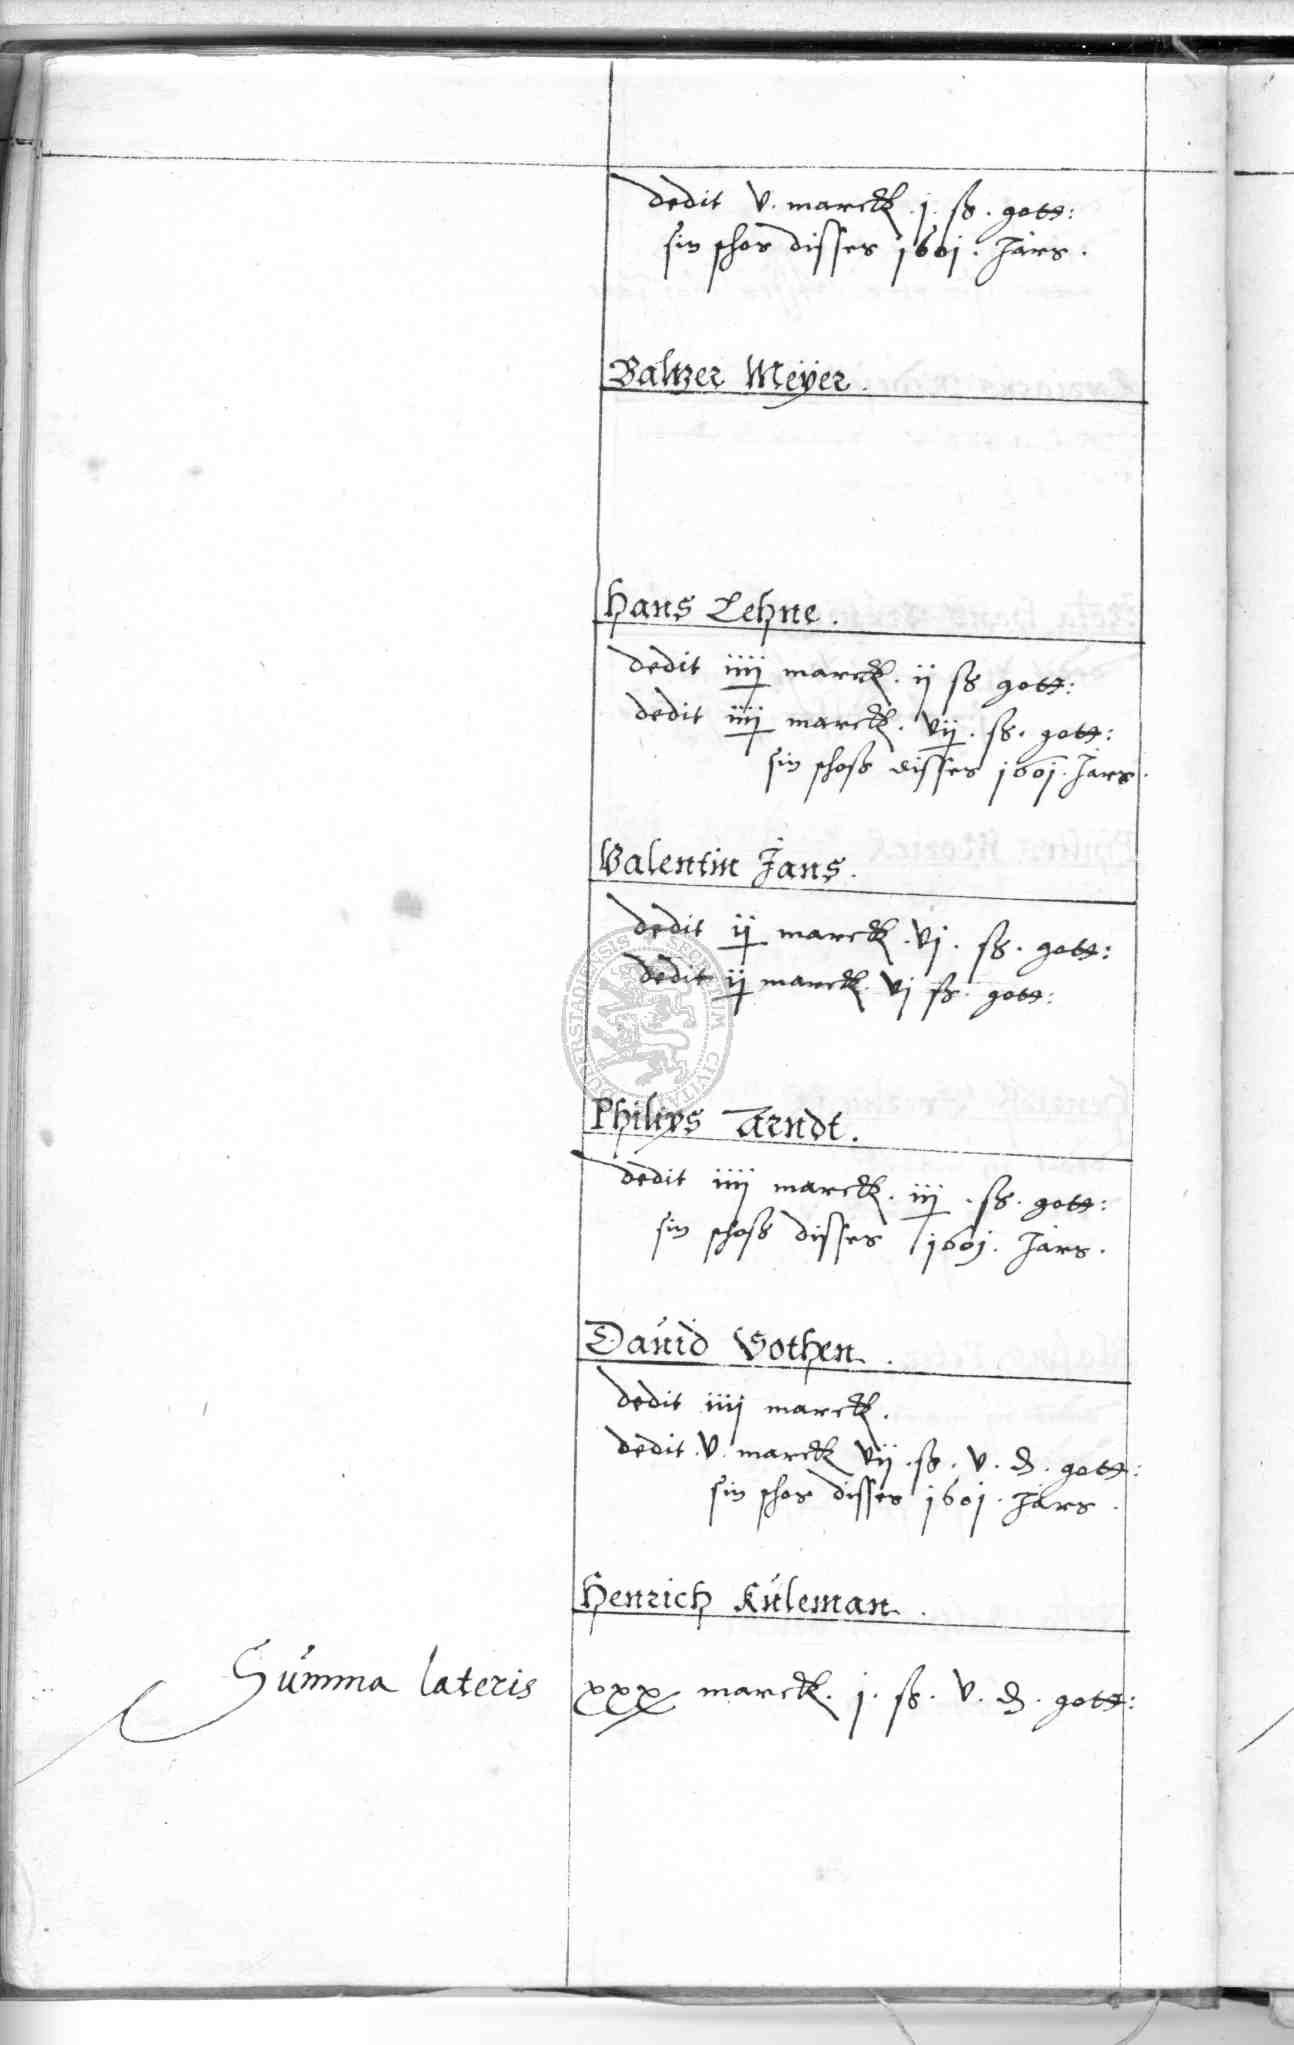 dedit v. marck. j. ß. gott:
sin schos disses 1601. Jars.
Baltzer Meÿer.
Hans Lehne.
dedit iiij marck. ij ß gott:
dedit iiij marck. vij. ß. gott:
sin schoß disses 1601. Jars.
Valentin Jans.
dedit ij marck. vj. ß. gott:
dedit ij marck. vj ß. gott:
Philips Arndt.
dedit iiij marck. iij. ß. gott:
sin schoß disses 1601. Jars.
Dauid Vothen.
dedit iiij marck.
dedit. v. marck vij. ß. v. ₰. gott:
sin schos disses 1601. Jars.
Henrich Kuleman.
Summa lateris xxx marck. j. ß. v. ₰. gott: